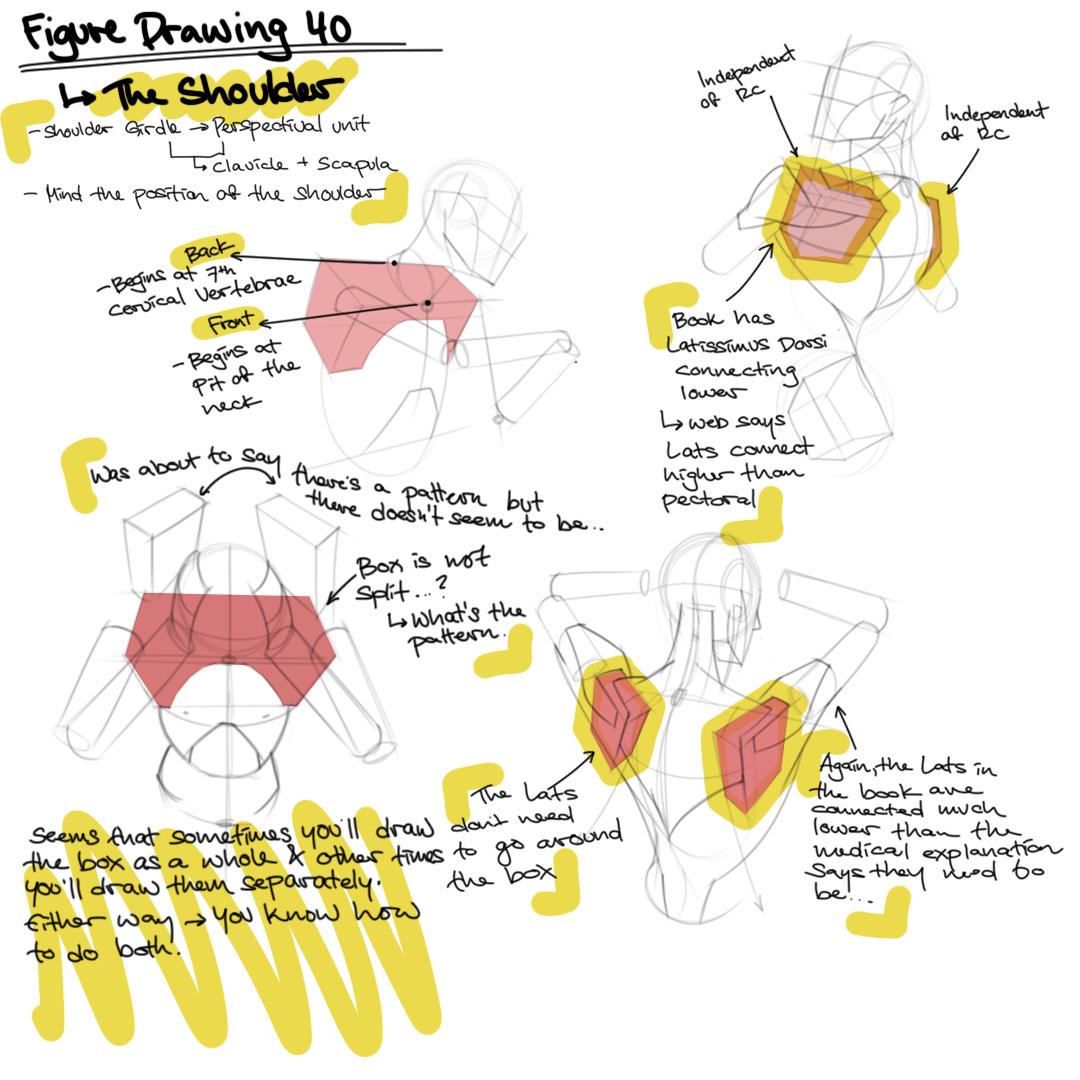 Figure Drawing 40
↳ The Shoulder
- Shoulder Girdle → Perspectival unit
↳ Clavicle + Scapula
- Mind the position of the shoulder
Back
- Begins at 7th
cervical Vertebrae
Front
- Begins at
Pit of the
neck
Independent
of RC
Independent
of RC
Book has
Latissimus Dorsi
connecting
lower
↳ web says
Lats connect
higher than
pectoral
Was about to say
there's a pattern but
there doesn't seem to be...
Box is not
split...?
↳ What's the
pattern.
The Lats
don't need
to go around
the box
Again, the Lats in
the book are
connected much
lower than the
medical explanation
says they need to
be...
Seems that sometimes you'll draw
the box as a whole & other times
you'll draw them separately.
Either way → you know how
to do both.